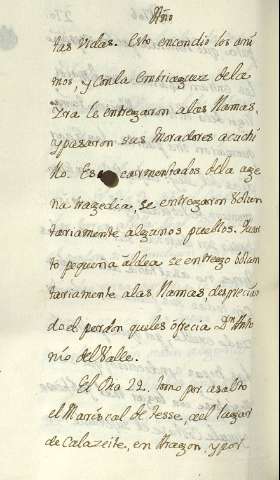 Año
tas vidas. Esto encendio los ani
mos, y con la embriaguez de la
Ira le entregaron a las llamas,
y pasaron sus Moradores a cuchi
llo. Es carmentados de la age
na tragedia, se entregaron Volun
tariamente algunos pueblos. Quar
to pequeña aldea se entrego Volun
tariamente a las llamas, desprecian
do el perdon que les ofrecia Dn Anto
nio del Valle.
El Dia 22. tomo por asalto
el Mariscal de Tesse, el lugar
de Calazeite, en Aragon, y por